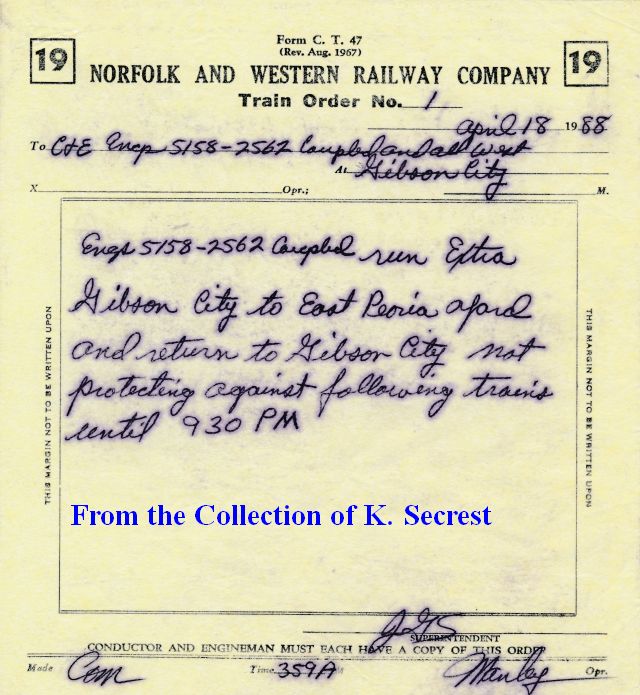 Form C. T. 47
(Rev. Aug. 1967)
19 NORFOLK AND WESTERN RAILWAY COMPANY 19
Train Order No. 1
April 18 1988
To C&E Engs 5158-2562 Coupled and all West
At Gibson City
X Opr.; M.
Engs 5158-2562 Coupled run Extra
Gibson City to East Peoria
and return to Gibson City not
protecting against following trains
until 930 PM
THIS MARGIN NOT TO BE WRITTEN UPON
THIS MARGIN NOT TO BE WRITTEN UPON
From the Collection of K. Secrest
SUPERINTENDENT
CONDUCTOR AND ENGINEMAN MUST EACH HAVE A COPY OF THIS ORDER
Made Com Time 359A M Manley Opr.